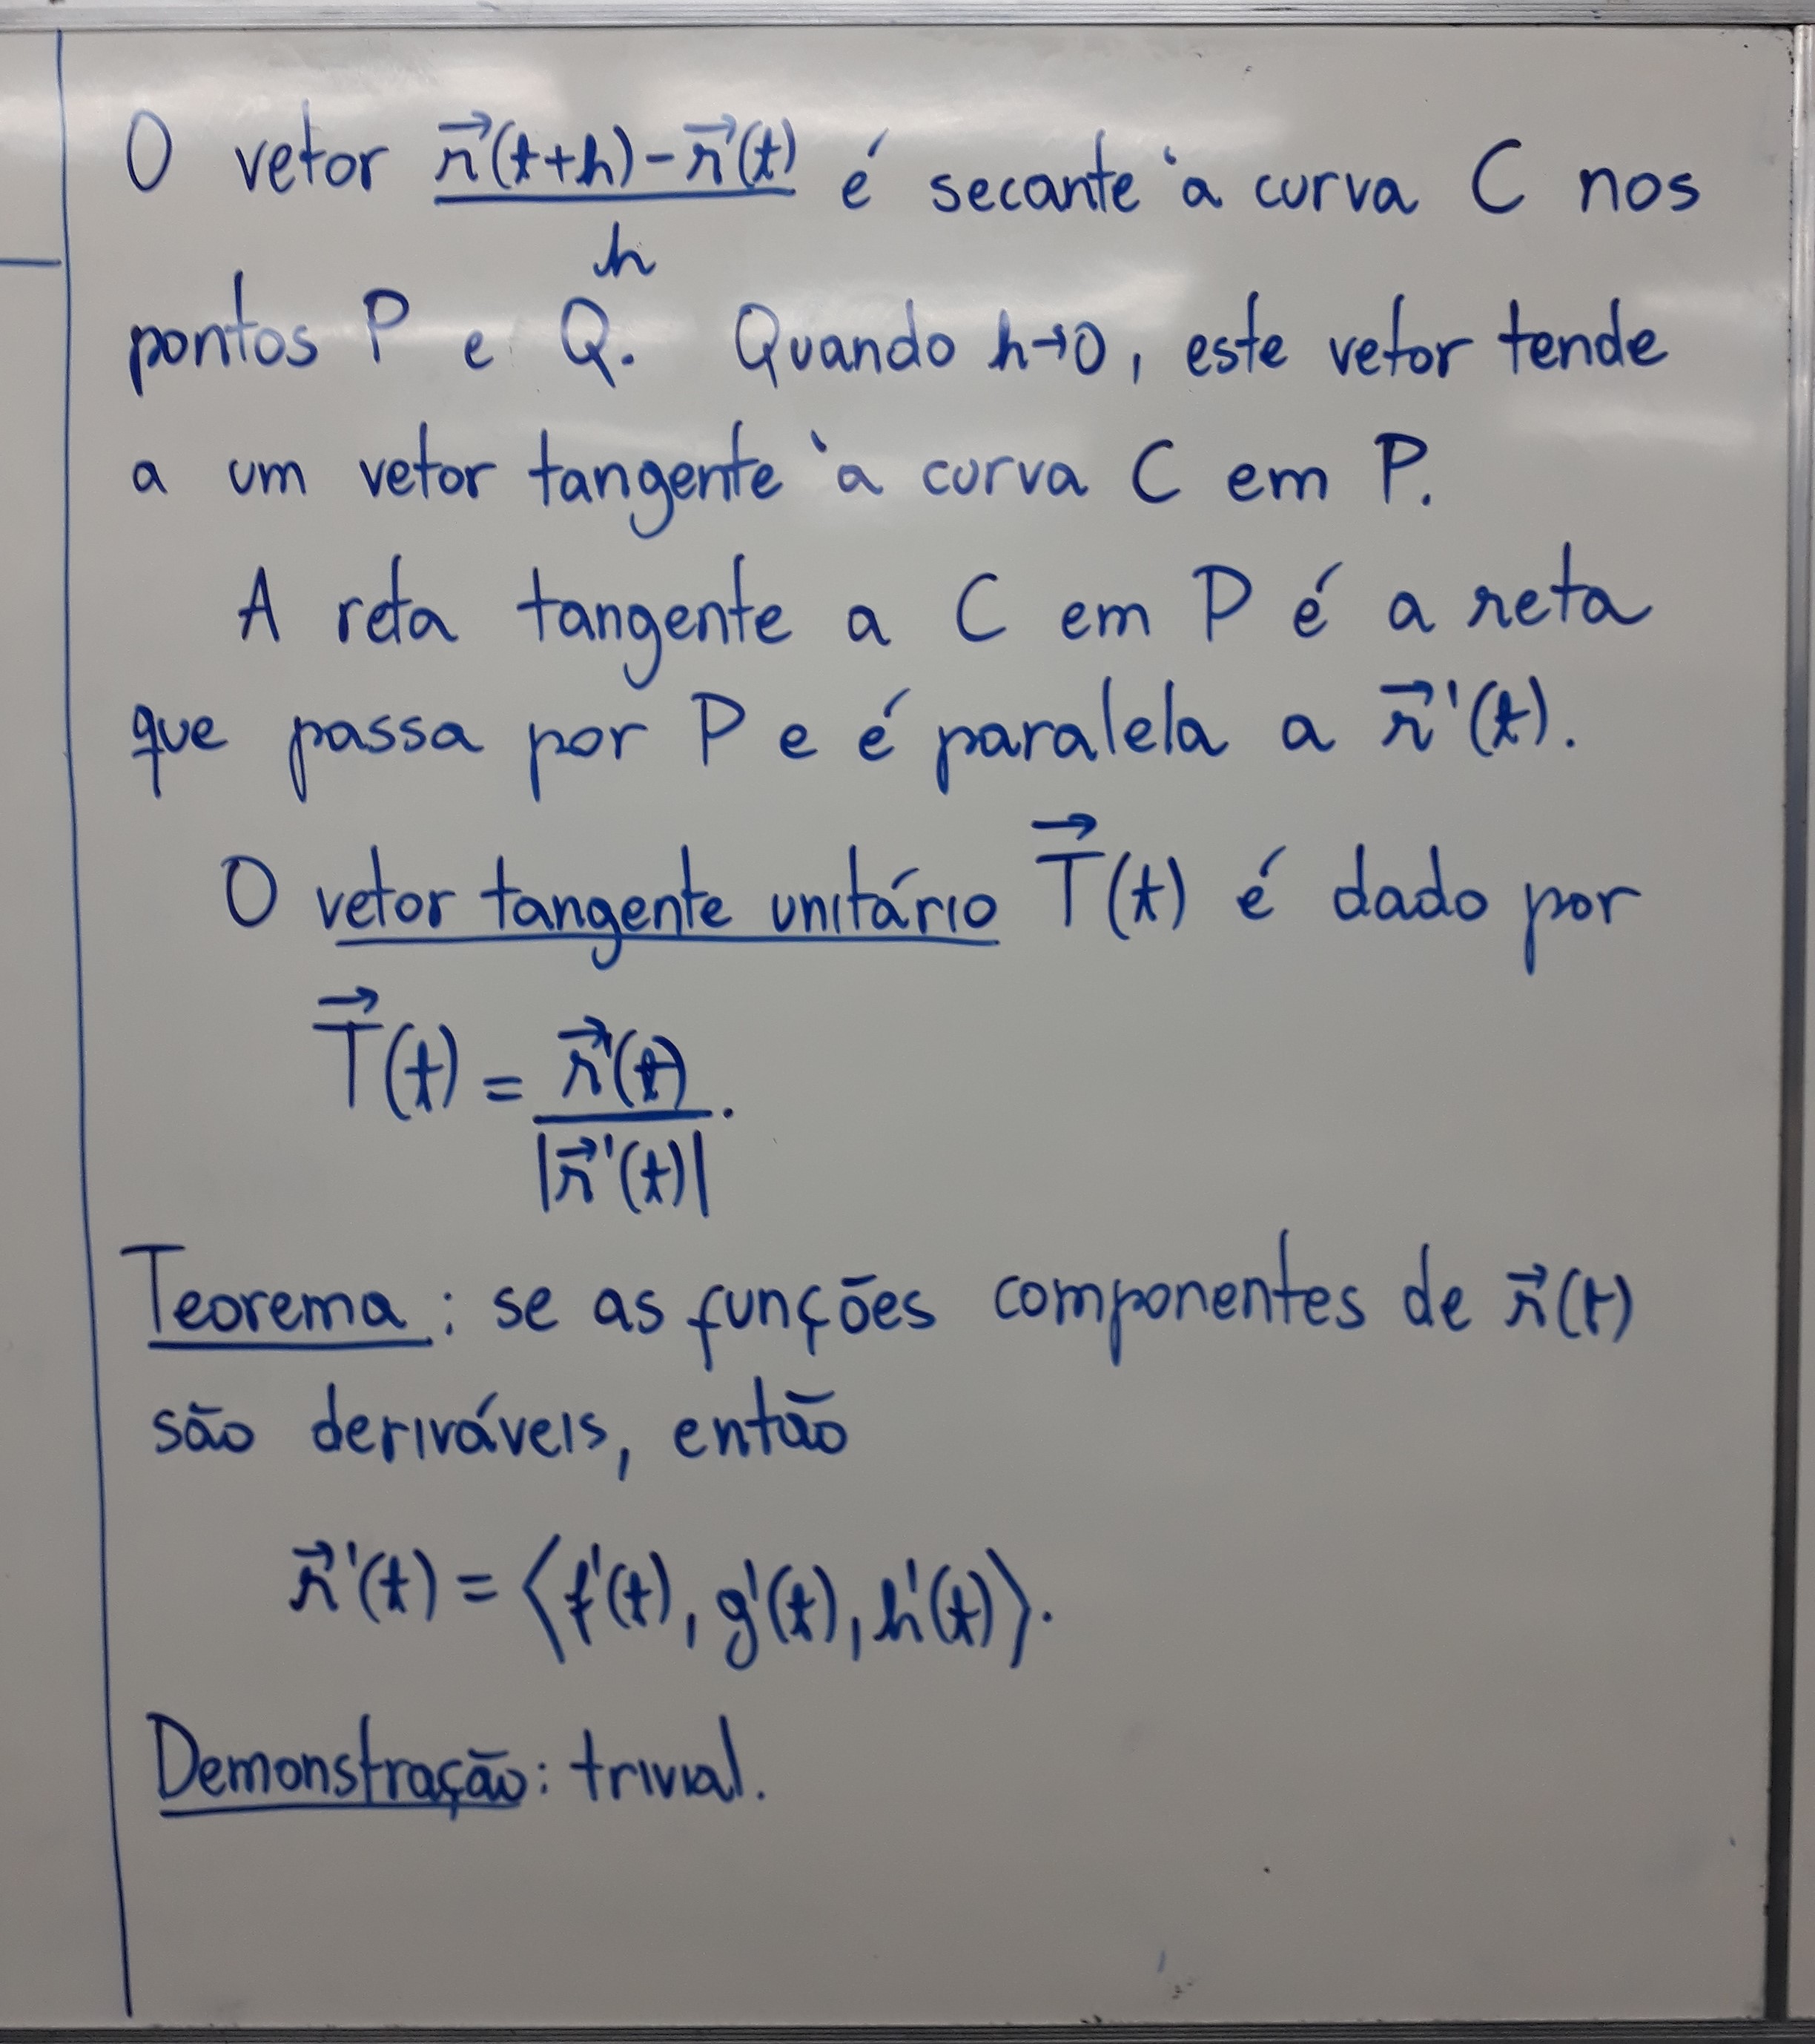 O vetor \frac{\vec{r}(t+h)-\vec{r}(t)}{h} é secante à curva C nos
pontos P e Q. Quando h→0, este vetor tende
a um vetor tangente à curva C em P.
A reta tangente a C em P é a reta
que passa por P e é paralela a \vec{r}'(t).
O vetor tangente unitário \vec{T}(t) é dado por
\vec{T}(t) = \frac{\vec{r}'(t)}{|\vec{r}'(t)|}.
Teorema: se as funções componentes de \vec{r}(t)
são deriváveis, então
\vec{r}'(t) = ⟨f'(t), g'(t), h'(t)⟩.
Demonstração: trivial.